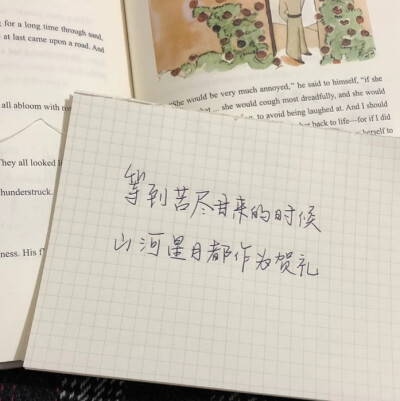 for a long time through sand,
at last came upon a road. And
all abloom with
They all looked
thunderstruck.
ness. His
"She would be very much annoyed," he said to himself, "if she
she would cough most dreadfully, and she would
to avoid being laughed at. And I should
back to life—for if I did
herself to
等到苦尽甘来的时候
山河星月都作为贺礼